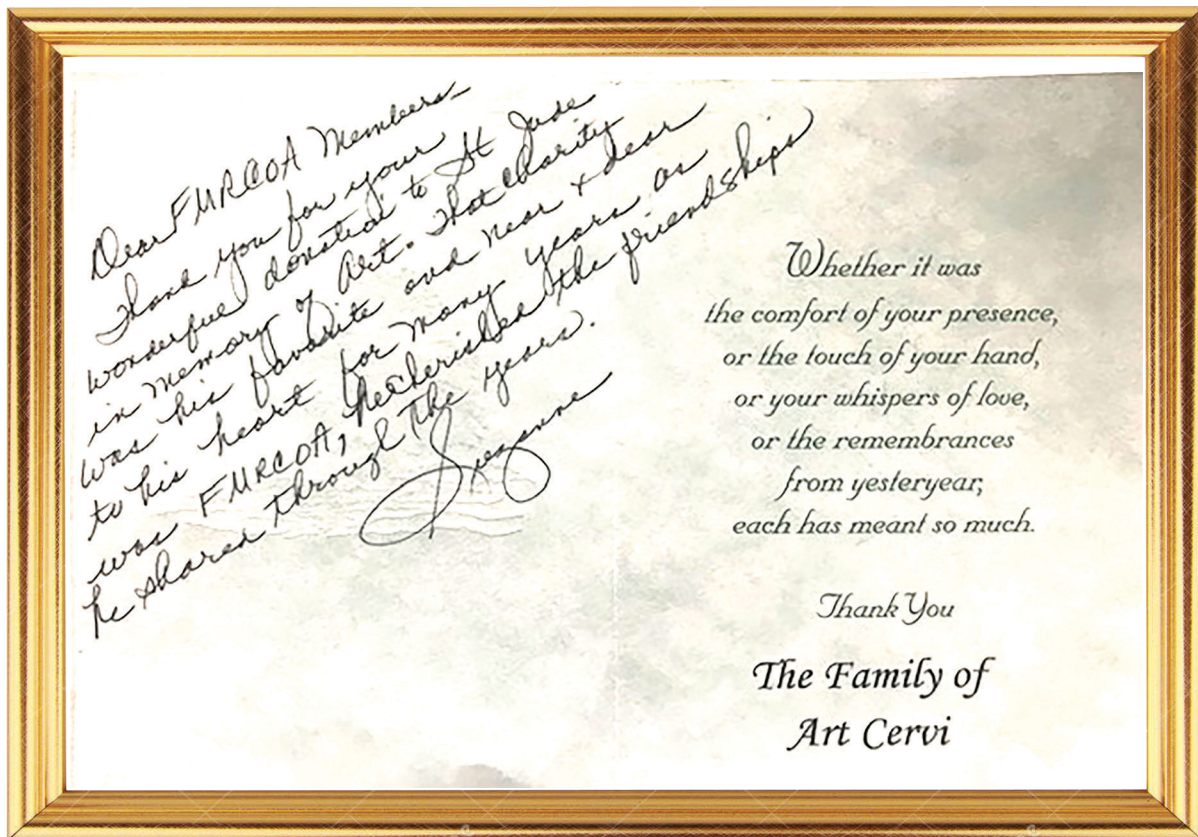 Dear FMRCOA Members—
Thank you for your
wonderful donation to St Jude
in memory of Art. That charity
was his favorite and near & dear
to his heart for many years as
was FMRCOA, he cherished the friendships
he shared through the years.
Suzanne
Whether it was
the comfort of your presence,
or the touch of your hand,
or your whispers of love,
or the remembrances
from yesteryear,
each has meant so much.
Thank You
The Family of
Art Cervi